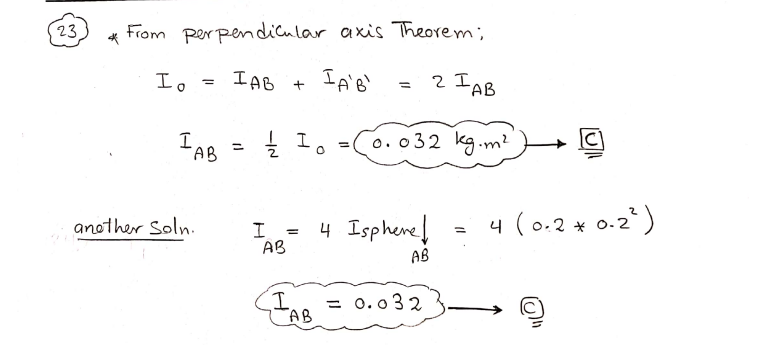 23 * From perpendicular axis Theorem;
I₀ = I_AB + I_A'B' = 2 I_AB
I_AB = 1/2 I₀ = 0.032 kg.m² → C
another Soln. I_AB = 4 Isphere↓_AB = 4 (0.2 * 0.2²)
I_AB = 0.032 → C